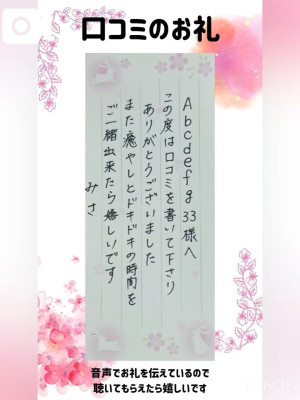 口コミのお礼
Abcdefg33様へ
この度は口コミを書いて下さり
ありがとうございました
また癒やしとドキドキの時間を
ご一緒出来たら嬉しいです
みさ
音声でお礼を伝えているので
聴いてもらえたら嬉しいです